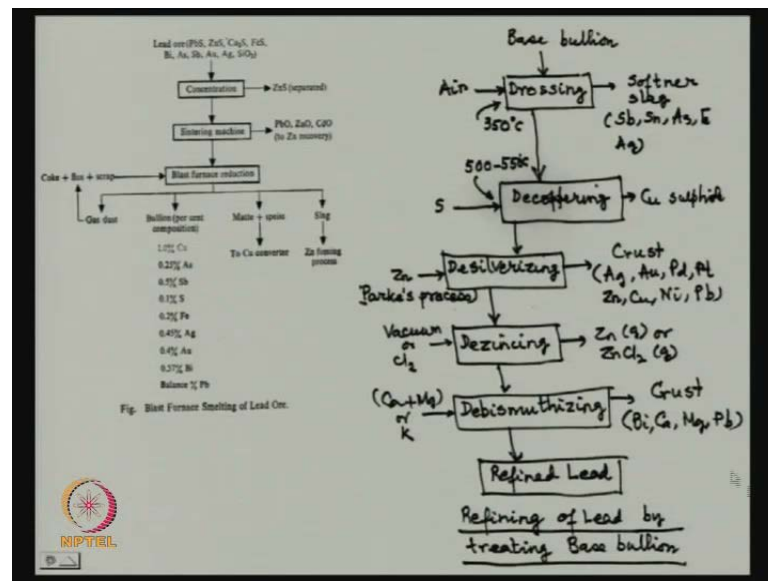 Lead ore (PbS, ZnS, Cu₂S, FeS,
Bi, As, Sb, Au, Ag, SiO₂)
Concentration
ZnS (separated)
Entering machine
PbO, ZnO, CdO
(to Zn recovery)
Coke + flux + scrap
Blast furnace reduction
Gas dust
Bullion (per cent
composition)
Matte + speiss
Slag
To Cu converter
Zn fuming
process
1.0% Cu
0.25% As
0.5% Sb
0.1% S
0.2% Fe
0.45% Ag
0.4% Au
0.37% Bi
Balance % Pb
Fig. Blast Furnace Smelting of Lead Ore.
Base bullion
Air
Drossing
Softner
slag
(Sb, Sn, As, &
Ag)
350°C
500-550c
S
Decoppering
Cu sulphide
Zn
Parke's process)
Desilverizing
Crust
(Ag, Au, Pd, Pt
Zn, Cu, Ni, Pb)
Vacuum
or
Cl₂
Dezincing
Zn (g) or
ZnCl₂ (g)
(Ca+Mg)
or
K
Debismuthizing
Crust
(Bi, Ca, Mg, Pb)
Refined Lead
Refining of Lead by
treating Base bullion
NPTEL